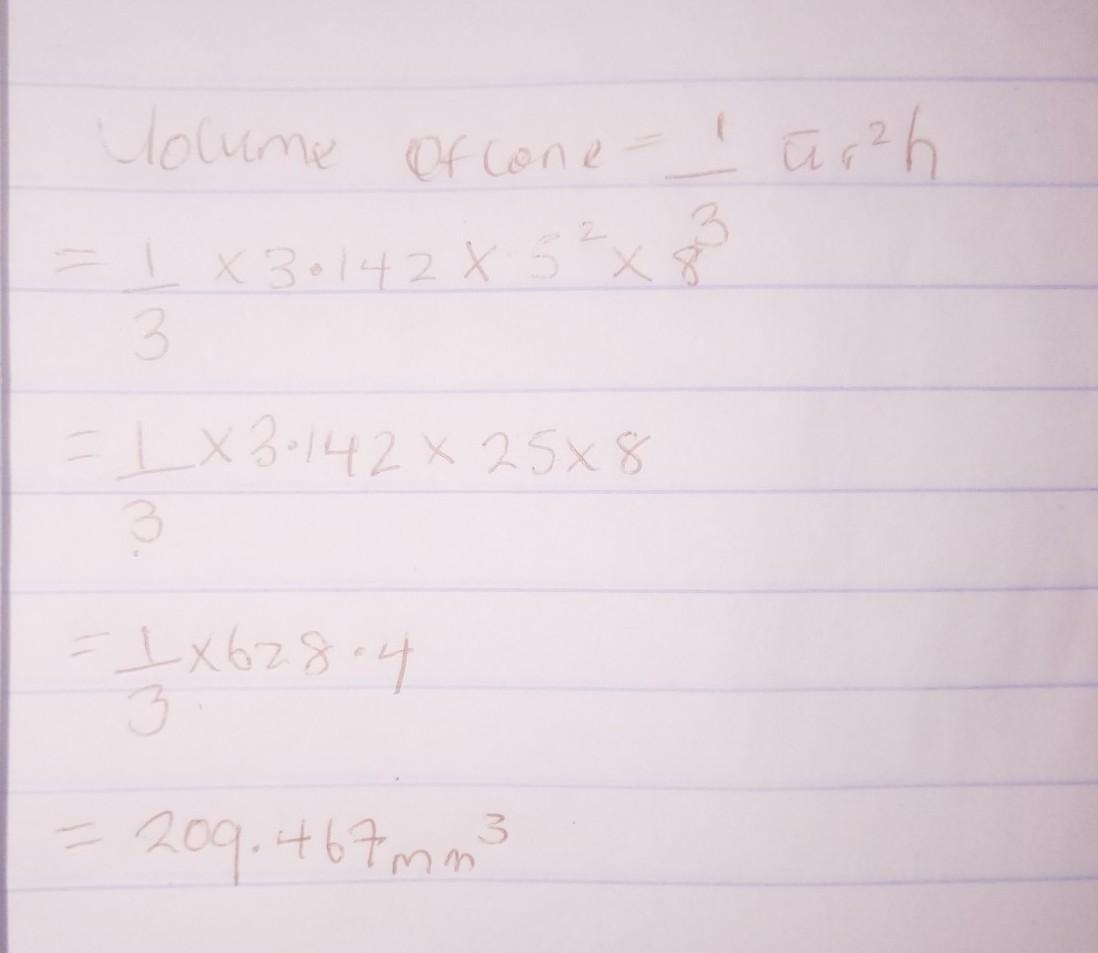 Volume Of Cone = 1/3 π r² h
= 1/3 × 3.142 × 5² × 8
= 1/3 × 3.142 × 25 × 8
= 1/3 × 628.4
= 209.467mm³